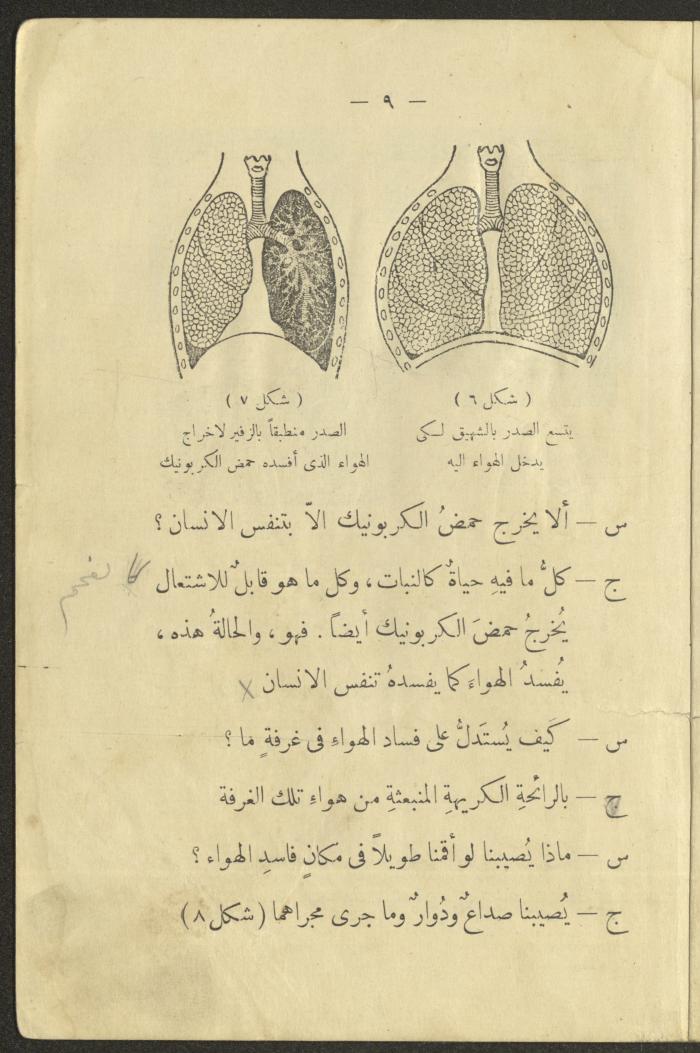 — ٩ —
( شكل ٦ )
يتسع الصدر بالشهيق لكى
يدخل الهواء اليه
( شكل ٧ )
الصدر منطبقاً بالزفير لاخراج
الهواء الذى أفسده حمض الكربونيك
س — ألا يخرج حمضُ الكربونيك الاّ بتنفس الانسان ؟
ج — كلُّ ما فيهِ حياةٌ كالنبات ، وكل ما هو قابلٌ للاشتعال
يُخرجُ حمضَ الكربونيك أيضاً . فهو ، والحالةُ هذه ،
يُفسدُ الهواءَ كما يفسدهُ تنفس الانسان x
س — كَيف يُستَدلُّ على فساد الهواءِ فى غرفةٍ مَا ؟
ج — بالرائحةِ الكريهةِ المنبعثةِ من هواءِ تلك الغرفة
س — ماذا يُصيبنا لو أقمنا طويلاً فى مكانٍ فاسدِ الهواء ؟
ج — يُصيبنا صداعٌ ودُوارٌ وما جرى مجراهما ( شكل ٨ )